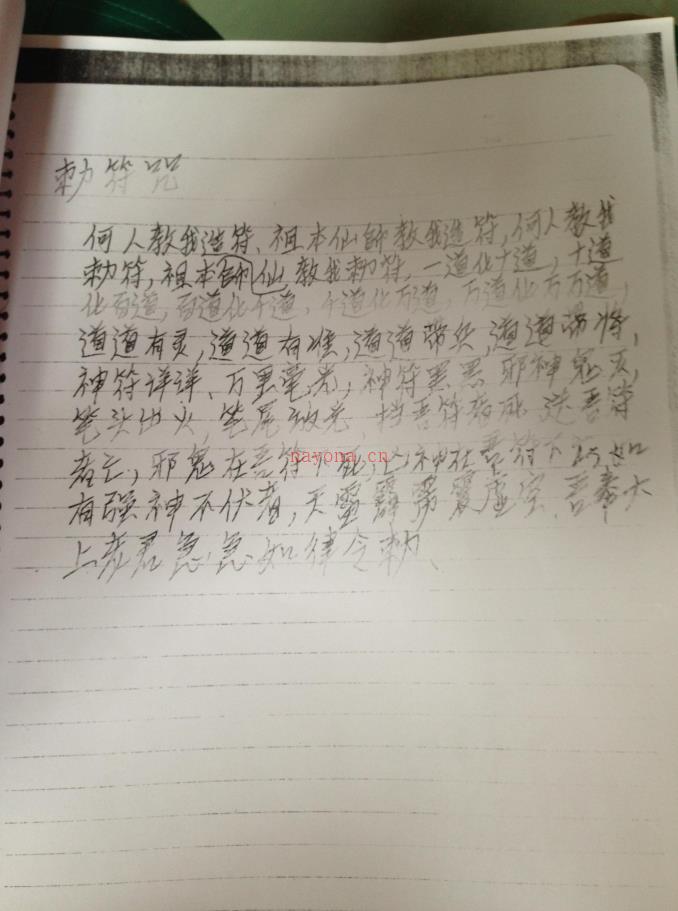 勅符咒
何人教我造符、祖本仙師教我造符，何人教我
勅符，祖本師仙教我勅符，一道化十道，十道
化百道，百道化千道，千道化万道，万道化万万道，
道道有灵，道道有准，道道带兵，道道带将，
神符详详、万里毫光，神符黑黑 邪神鬼灭，
笔头出火，笔尾放光 挡吾符者死 逆吾符
者亡，邪鬼在吾符下死，凶神在吾符下 如
有强神不伏者，天雷霹雳震虚空、吾奉太
上老君急急如律令勅、
nayona.cn